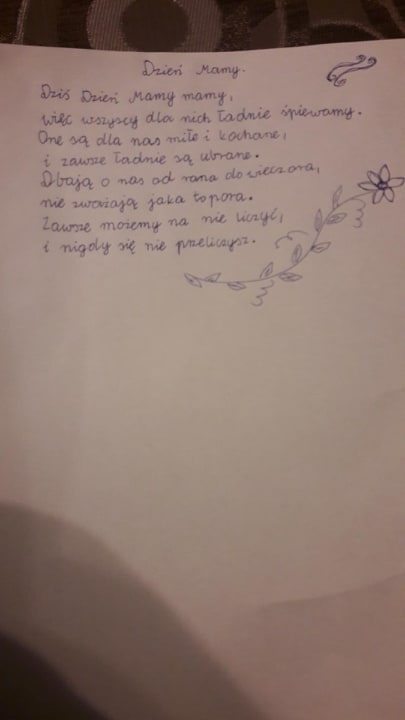 Dzień Mamy.
Dziś Dzień Mamy mamy,
więc wszyscy dla nich ładnie śpiewamy.
One są dla nas miłe i kochane,
i zawsze ładnie są ubrane.
Dbają o nas od rana do wieczora,
nie zważają jaka to pora.
Zawsze możemy na nie liczyć,
i nigdy się nie przeliczysz.